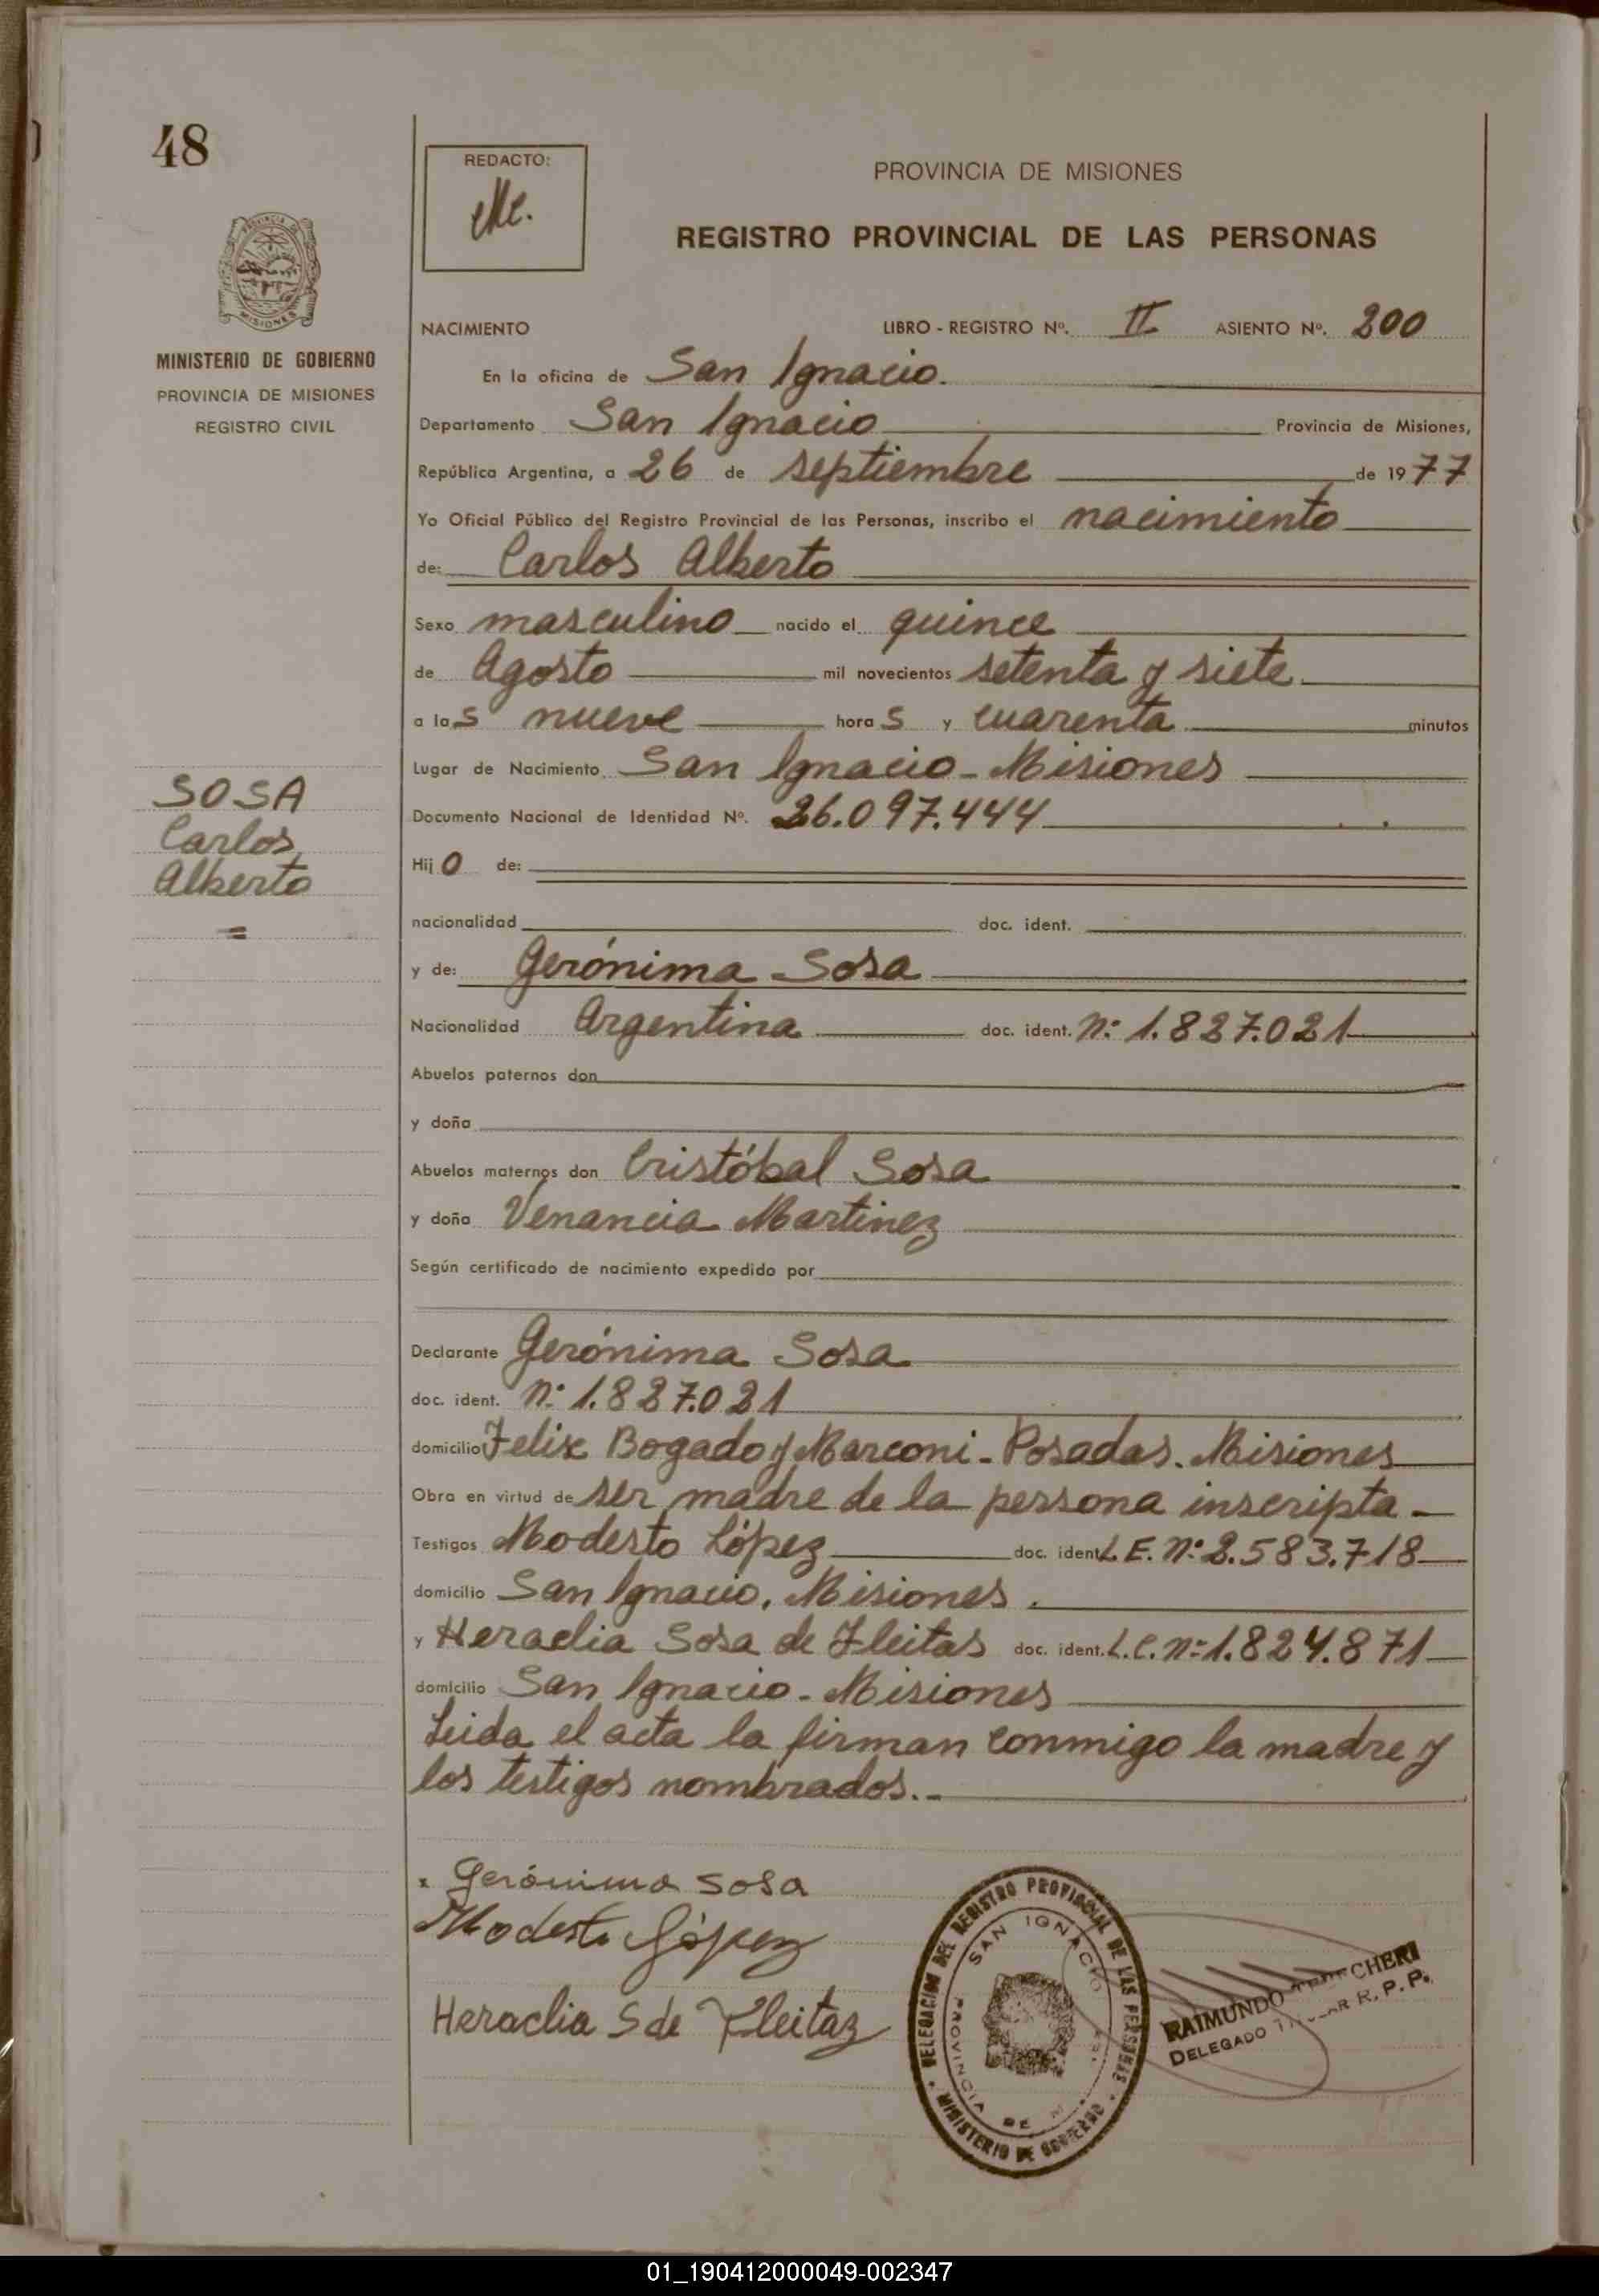 48
REDACTO:
Me.
PROVINCIA DE MISIONES
REGISTRO PROVINCIAL DE LAS PERSONAS
MINISTERIO DE GOBIERNO
PROVINCIA DE MISIONES
REGISTRO CIVIL
NACIMIENTO LIBRO - REGISTRO Nº. II ASIENTO Nº. 200
En la oficina de San Ignacio.
Departamento San Ignacio Provincia de Misiones,
República Argentina, a 26 de septiembre de 1977
Yo Oficial Público del Registro Provincial de las Personas, inscribo el nacimiento
de: Carlos Alberto
Sexo masculino nacido el quince
de Agosto mil novecientos setenta y siete
a las nueve horas y cuarenta minutos
Lugar de Nacimiento San Ignacio - Misiones
Documento Nacional de Identidad Nº. 26.097.444
SOSA
Carlos
Alberto
=
Hijo de:
nacionalidad doc. ident.
y de: Gerónima Sosa
Nacionalidad Argentina doc. ident. nº 1.827.021
Abuelos paternos don
y doña
Abuelos maternos don Cristóbal Sosa
y doña Venancia Martinez
Según certificado de nacimiento expedido por
Declarante Gerónima Sosa
doc. ident. nº 1.827.021
domicilio Felix Bogado y Marconi - Posadas. Misiones
Obra en virtud de ser madre de la persona inscripta -
Testigos Modesto López doc. ident. L.E. nº 2.583.718
domicilio San Ignacio, Misiones.
y Heraclia Sosa de Fleitas doc. ident. L.C. nº 1.824.871
domicilio San Ignacio - Misiones
Leida el acta la firman conmigo la madre y
los testigos nombrados.-
x Gerónima Sosa
Modesto López
Heraclia S de Fleitaz
DELEGACION DEL REGISTRO PROVINCIAL DE LAS PERSONAS
SAN IGNACIO
PROVINCIA DE
MINISTERIO DE GOBIERNO
RAIMUNDO
DELEGADO R.P.P.
01_190412000049-002347